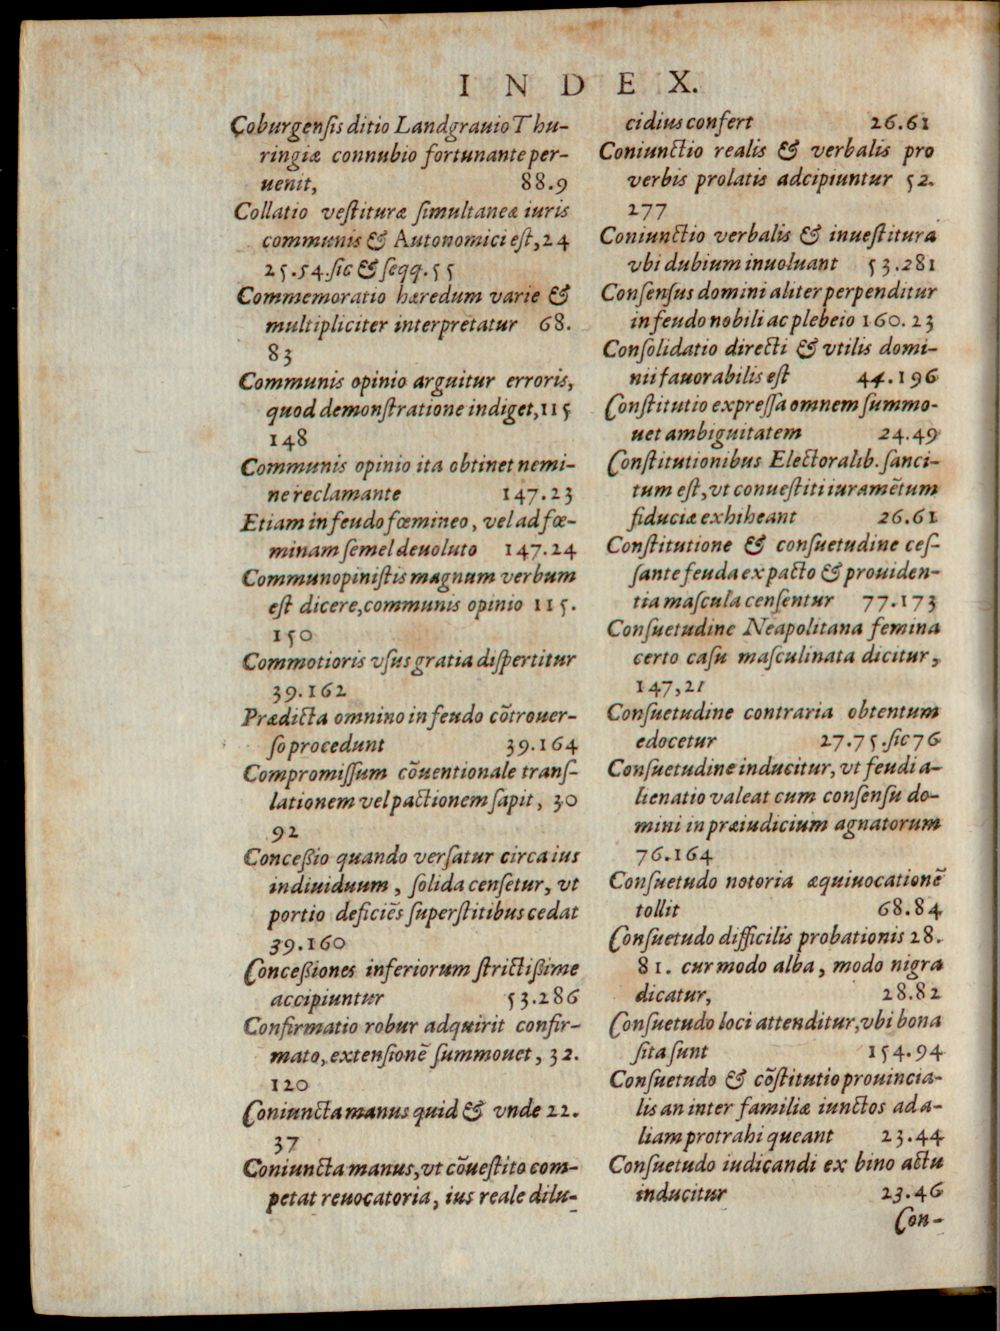 INDEX.
Coburgensis ditio Landgrauio Thu-
ringiæ connubio fortunante per-
uenit, 88.9
Collatio vestituræ simultaneæ iuris
communis & Autonomici est, 24
25.54. sic & seqq. 55
Commemoratio hæredum varie &
multipliciter interpretatur 68.
83
Communis opinio arguitur erroris,
quod demonstratione indiget, 115
148
Communis opinio ita obtinet nemi-
ne reclamante 147.23
Etiam in feudo fœmineo, vel ad fœ-
minam semel deuoluto 147.24
Communopinistis magnum verbum
est dicere, communis opinio 115.
150
Commotioris vsus gratia dispertitur
39.162
Prædicta omnino in feudo cōtrouer-
so procedunt 39.164
Compromissum cōuentionale trans-
lationem vel pactionem sapit, 30
92
Conceßio quando versatur circa ius
indiuiduum, solida censetur, vt
portio deficiēs superstitibus cedat
39.160
Conceßiones inferiorum strictißime
accipiuntur 53.286
Confirmatio robur adquirit confir-
mato, extensionē summouet, 32.
120
Coniuncta manus quid & vnde 22.
37
Coniuncta manus, vt cōuestito com-
petat reuocatoria, ius reale dilu-
cidius confert 26.61
Coniunctio realis & verbalis pro
verbis prolatis adcipiuntur 52.
277
Coniunctio verbalis & inuestitura
vbi dubium inuoluant 53.281
Consensus domini aliter perpenditur
in feudo nobili ac plebeio 160.23
Consolidatio directi & vtilis domi-
nii fauorabilis est 44.196
Constitutio expressa omnem summo-
uet ambiguitatem 24.49
Constitutionibus Electoralib. sanci-
tum est, vt conuestiti iuramētum
fiduciæ exhibeant 26.61
Constitutione & consuetudine ces-
sante feuda ex pacto & prouiden-
tia mascula censentur 77.173
Consuetudine Neapolitana femina
certo casu masculinata dicitur,
147,21
Consuetudine contraria obtentum
edocetur 27.75. sic 76
Consuetudine inducitur, vt feudi a-
lienatio valeat cum consensu do-
mini in præiudicium agnatorum
76.164
Consuetudo notoria æquiuocationē
tollit 68.84
Consuetudo difficilis probationis 28.
81. cur modo alba, modo nigra
dicatur, 28.82
Consuetudo loci attenditur, vbi bona
sita sunt 154.94
Consuetudo & cōstitutio prouincia-
lis an inter familiæ iunctos ad a-
liam protrahi queant 23.44
Consuetudo iudicandi ex bino actu
inducitur 23.46
Con-